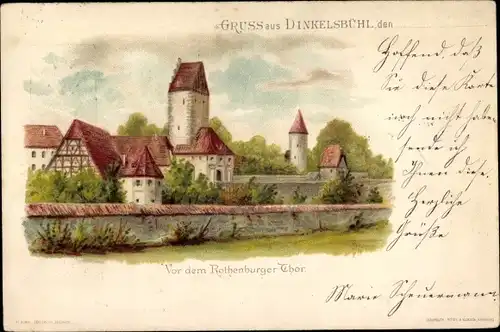 GRUSS aus DINKELSBÜHL, den
Hoffend, daß
Sie diese Karte
noch nicht haben
sende ich
Ihnen diese.
Herzliche
Grüße
Marie Scheuermann.
Vor dem Rothenburger Thor.